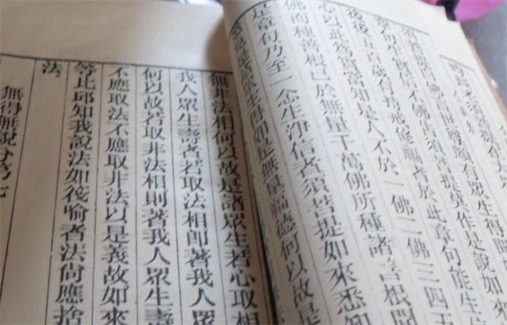 世尊頗有眾生得聞
生實信不佛告須菩提莫作是說如來
後後五百歲有持戒修福者於此章句能生
心以此為實當知是人不於一佛二佛三四五
佛而種善根已於無量千萬佛所種諸善根聞
是章句乃至一念生淨信者須菩提如來悉知
是諸眾生得如是無量福德何以故是
無非法相何以故是諸眾生若心取相
我人眾生壽者若取法相即著我人眾
何以故若取非法相則著我人眾生壽
不應取法不應取非法以是義故如來
等比邱知我說法如筏喻者法尚應捨
法
無得無說分第七